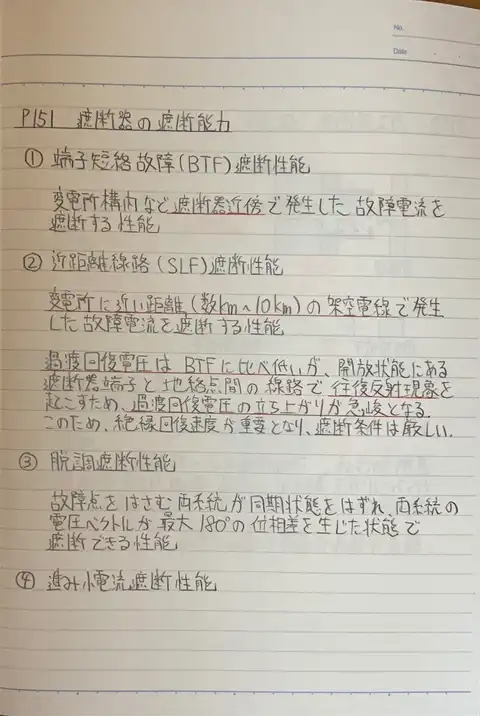 No.
Date
P151 遮断器の遮断能力
① 端子短絡故障(BTF)遮断性能
変電所構内など遮断器近傍で発生した故障電流を
遮断する性能
② 近距離線路(SLF)遮断性能
変電所に近い距離(数km~10km)の架空電線で発生
した故障電流を遮断する性能
過渡回復電圧はBTFに比べ低いが、開放状態にある
遮断器端子と地絡点間の線路で往復反射現象を
起こすため、過渡回復電圧の立ち上がりが急峻となる。
このため、絶縁回復速度が重要となり、遮断条件は厳しい。
③ 脱調遮断性能
故障点をはさむ両系統が同期状態をはずれ、両系統の
電圧ベクトルが最大180°の位相差を生じた状態で
遮断できる性能
④ 進み小電流遮断性能